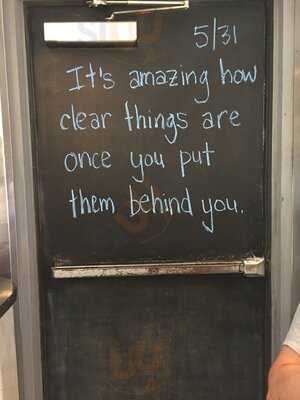 5/31
It's amazing how
clear things are
once you put
them behind you.